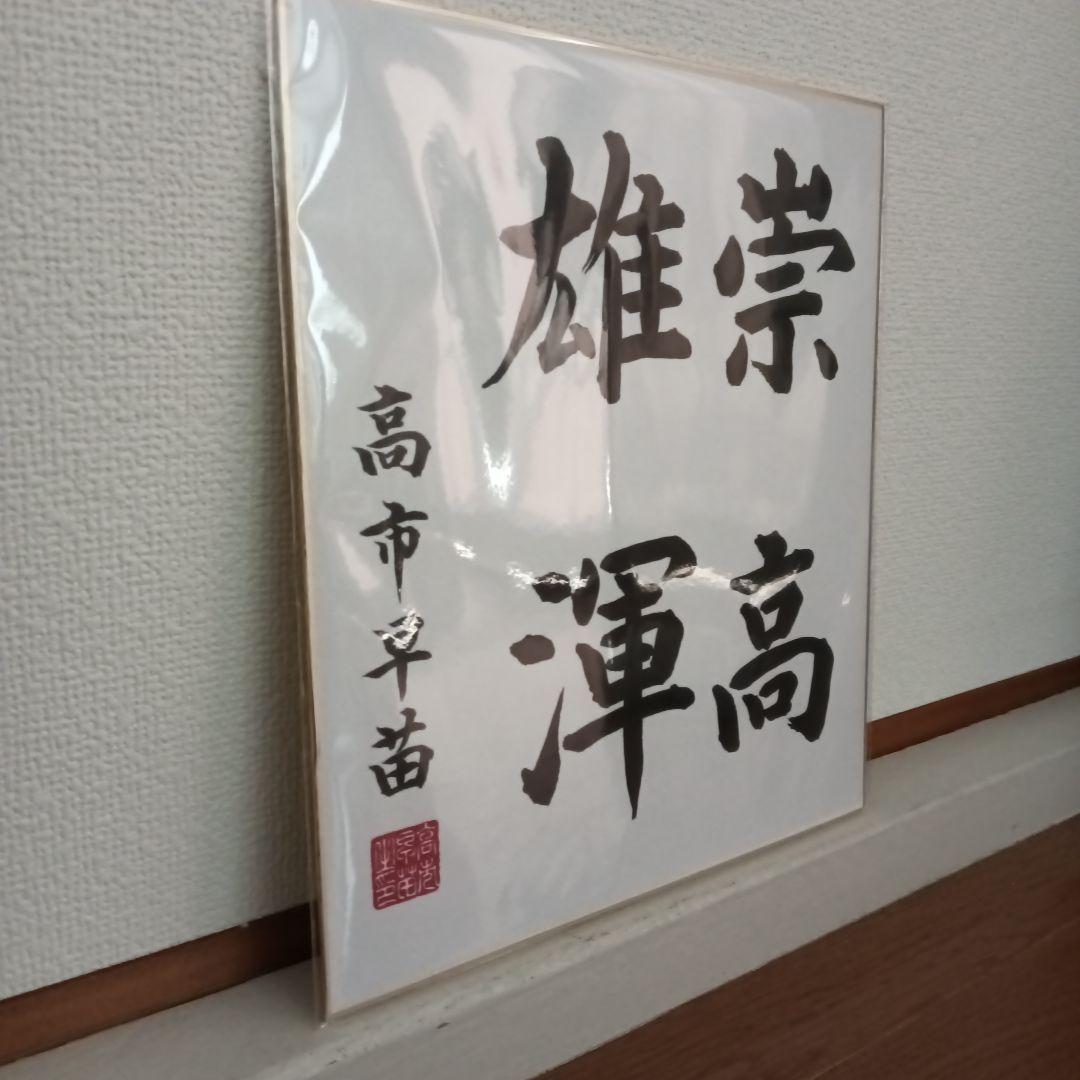 崇高
雄渾
高市早苗